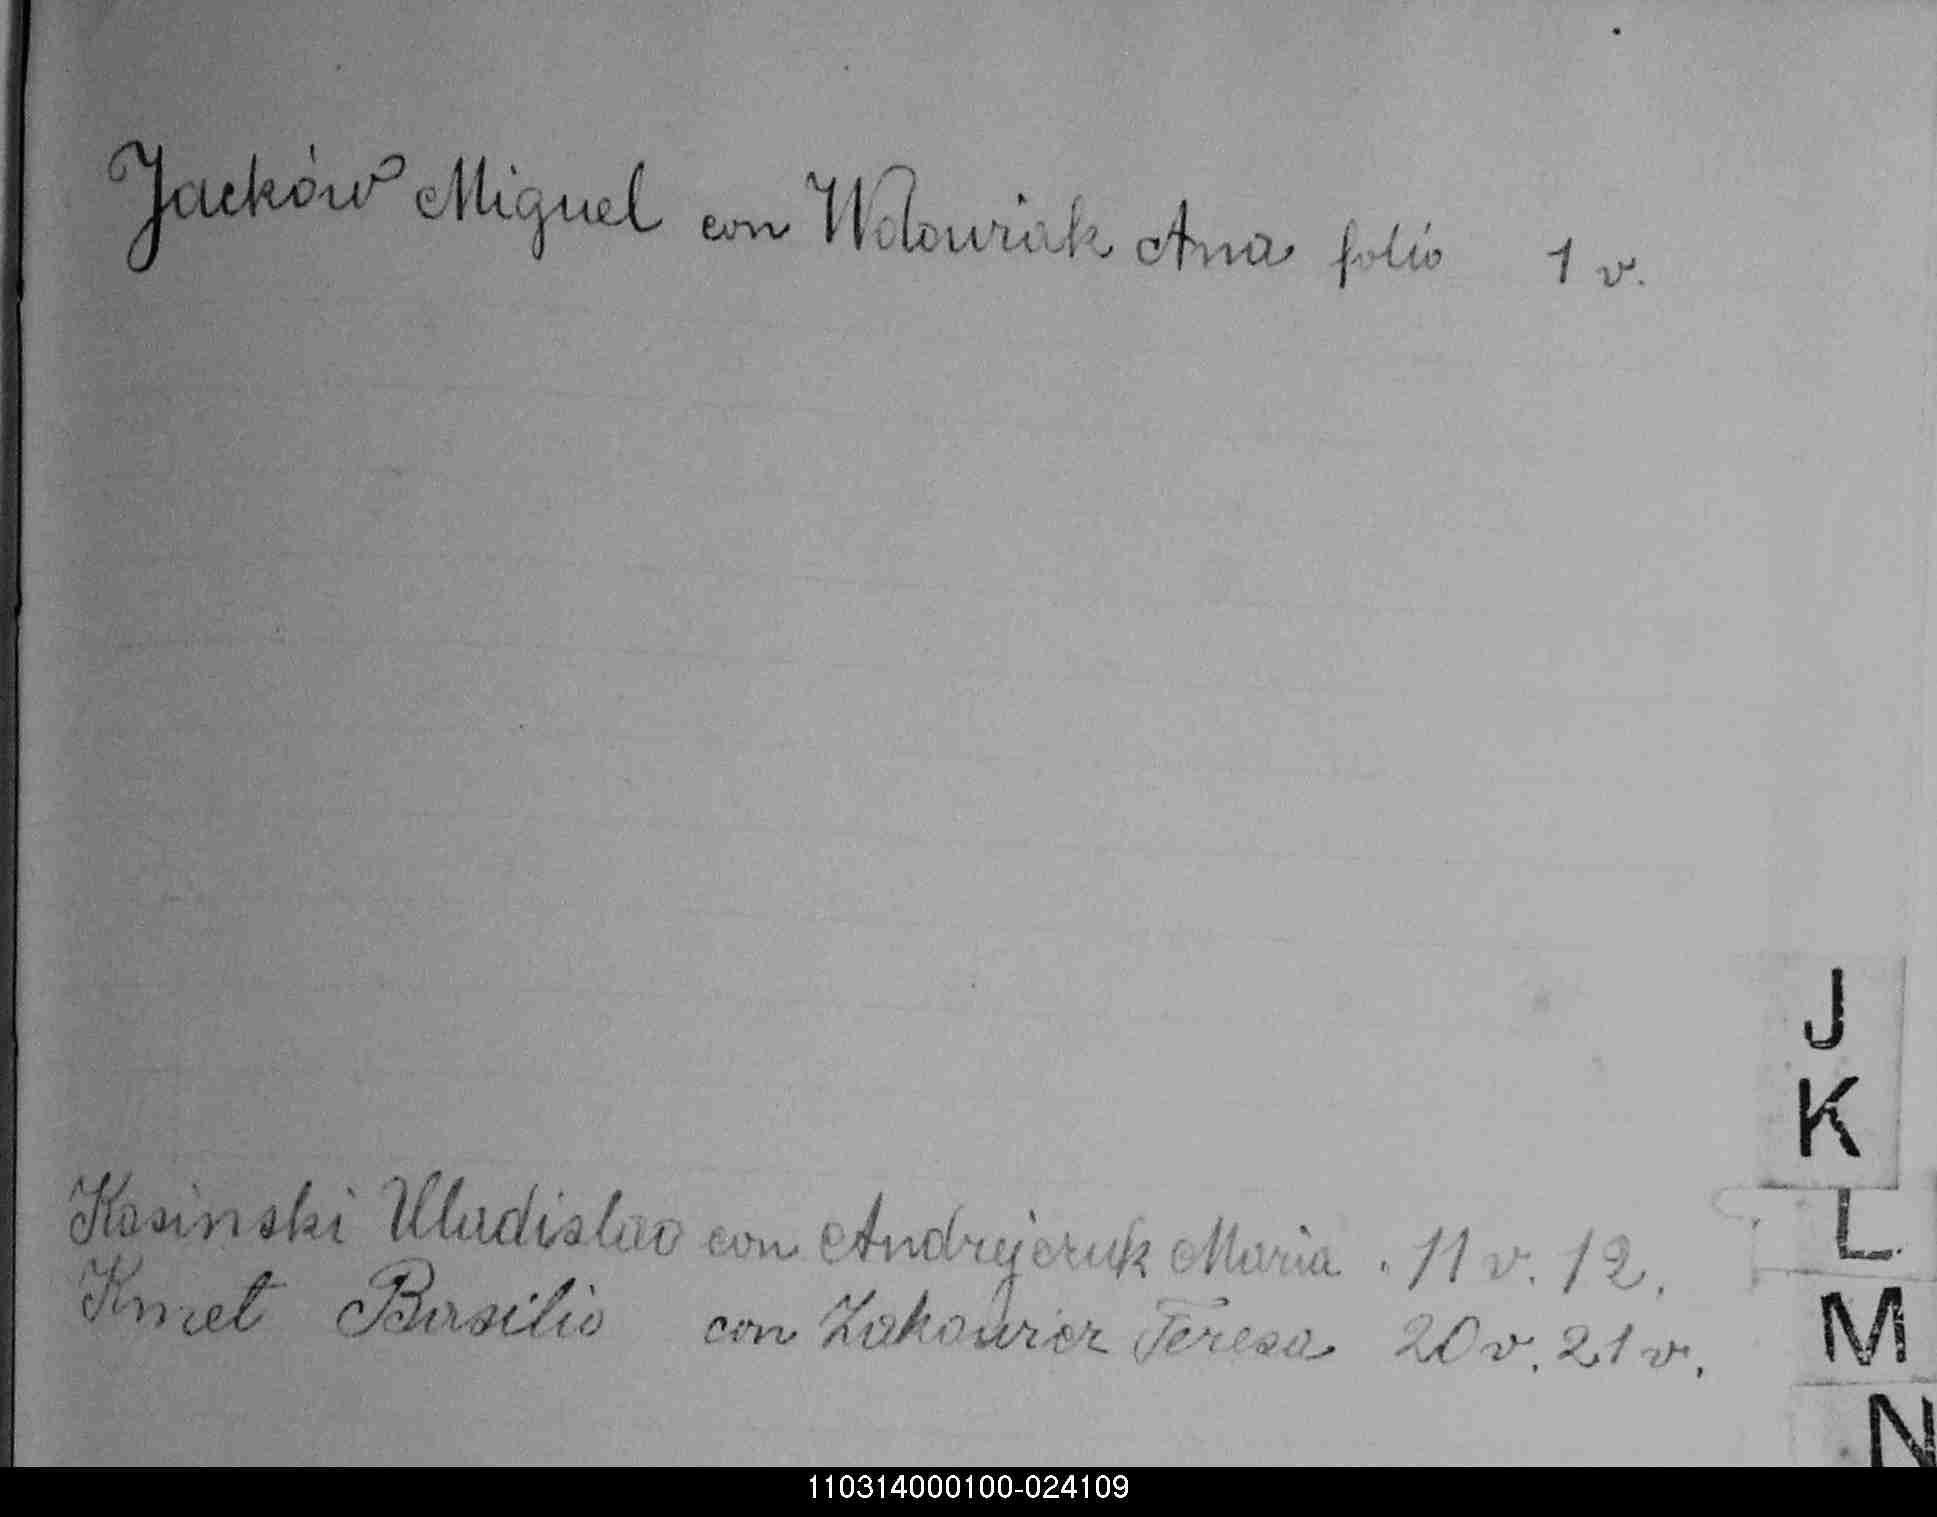 Jacków Miguel con Wolowiak Ana folio 1 v.
J
K
Kosinski Uladislao con Andrejczuk Maria . 11 v. 12.
L
Kmet Basilio con Zakowicz Teresa 20 v. 21 v.
M
N
110314000100-024109